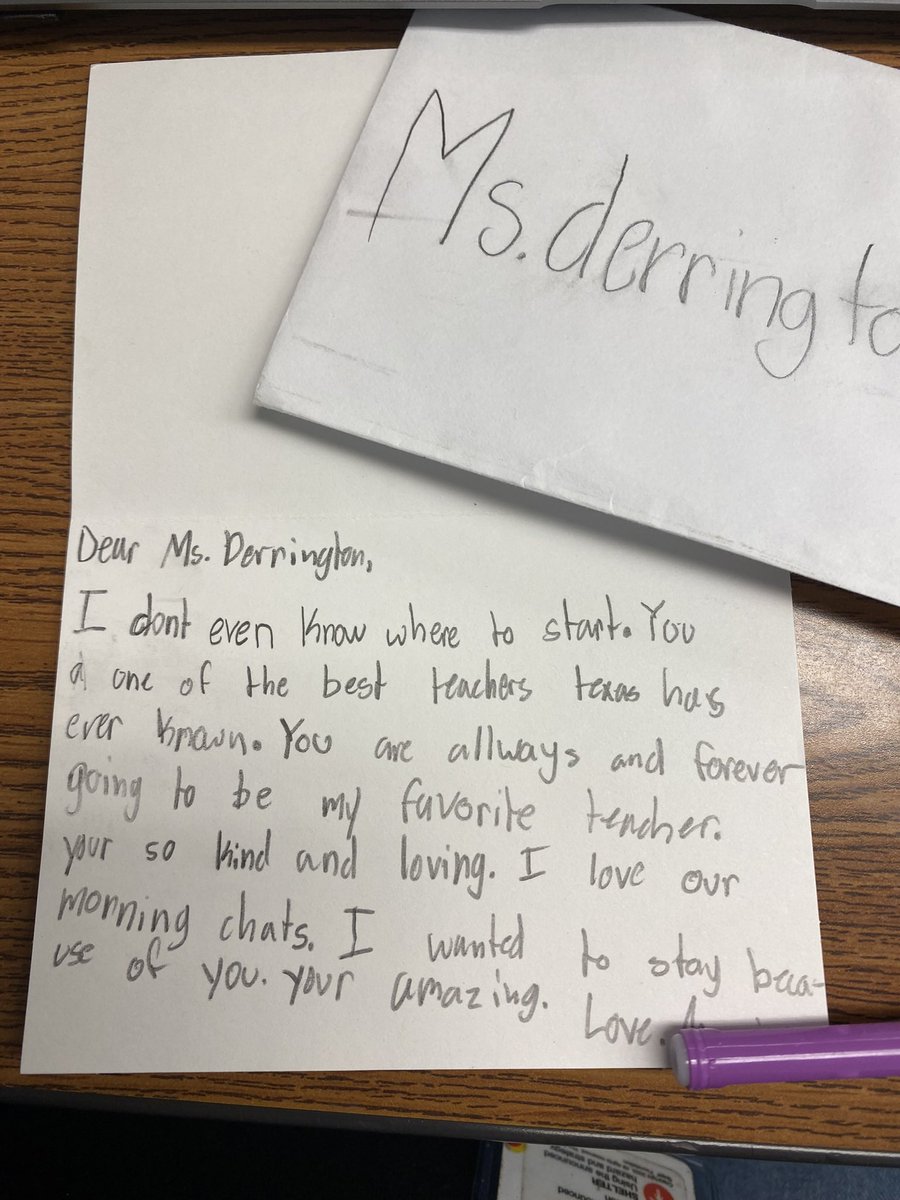 Ms. derringto
Dear Ms. Derrington,
I dont even know where to start. You
one of the best teachers texas has
ever known. You are allways and forever
going to be my favorite teacher.
your so kind and loving. I love our
morning chats. I wanted to stay beca-
use of you. your amazing.
Love.
SHELTER